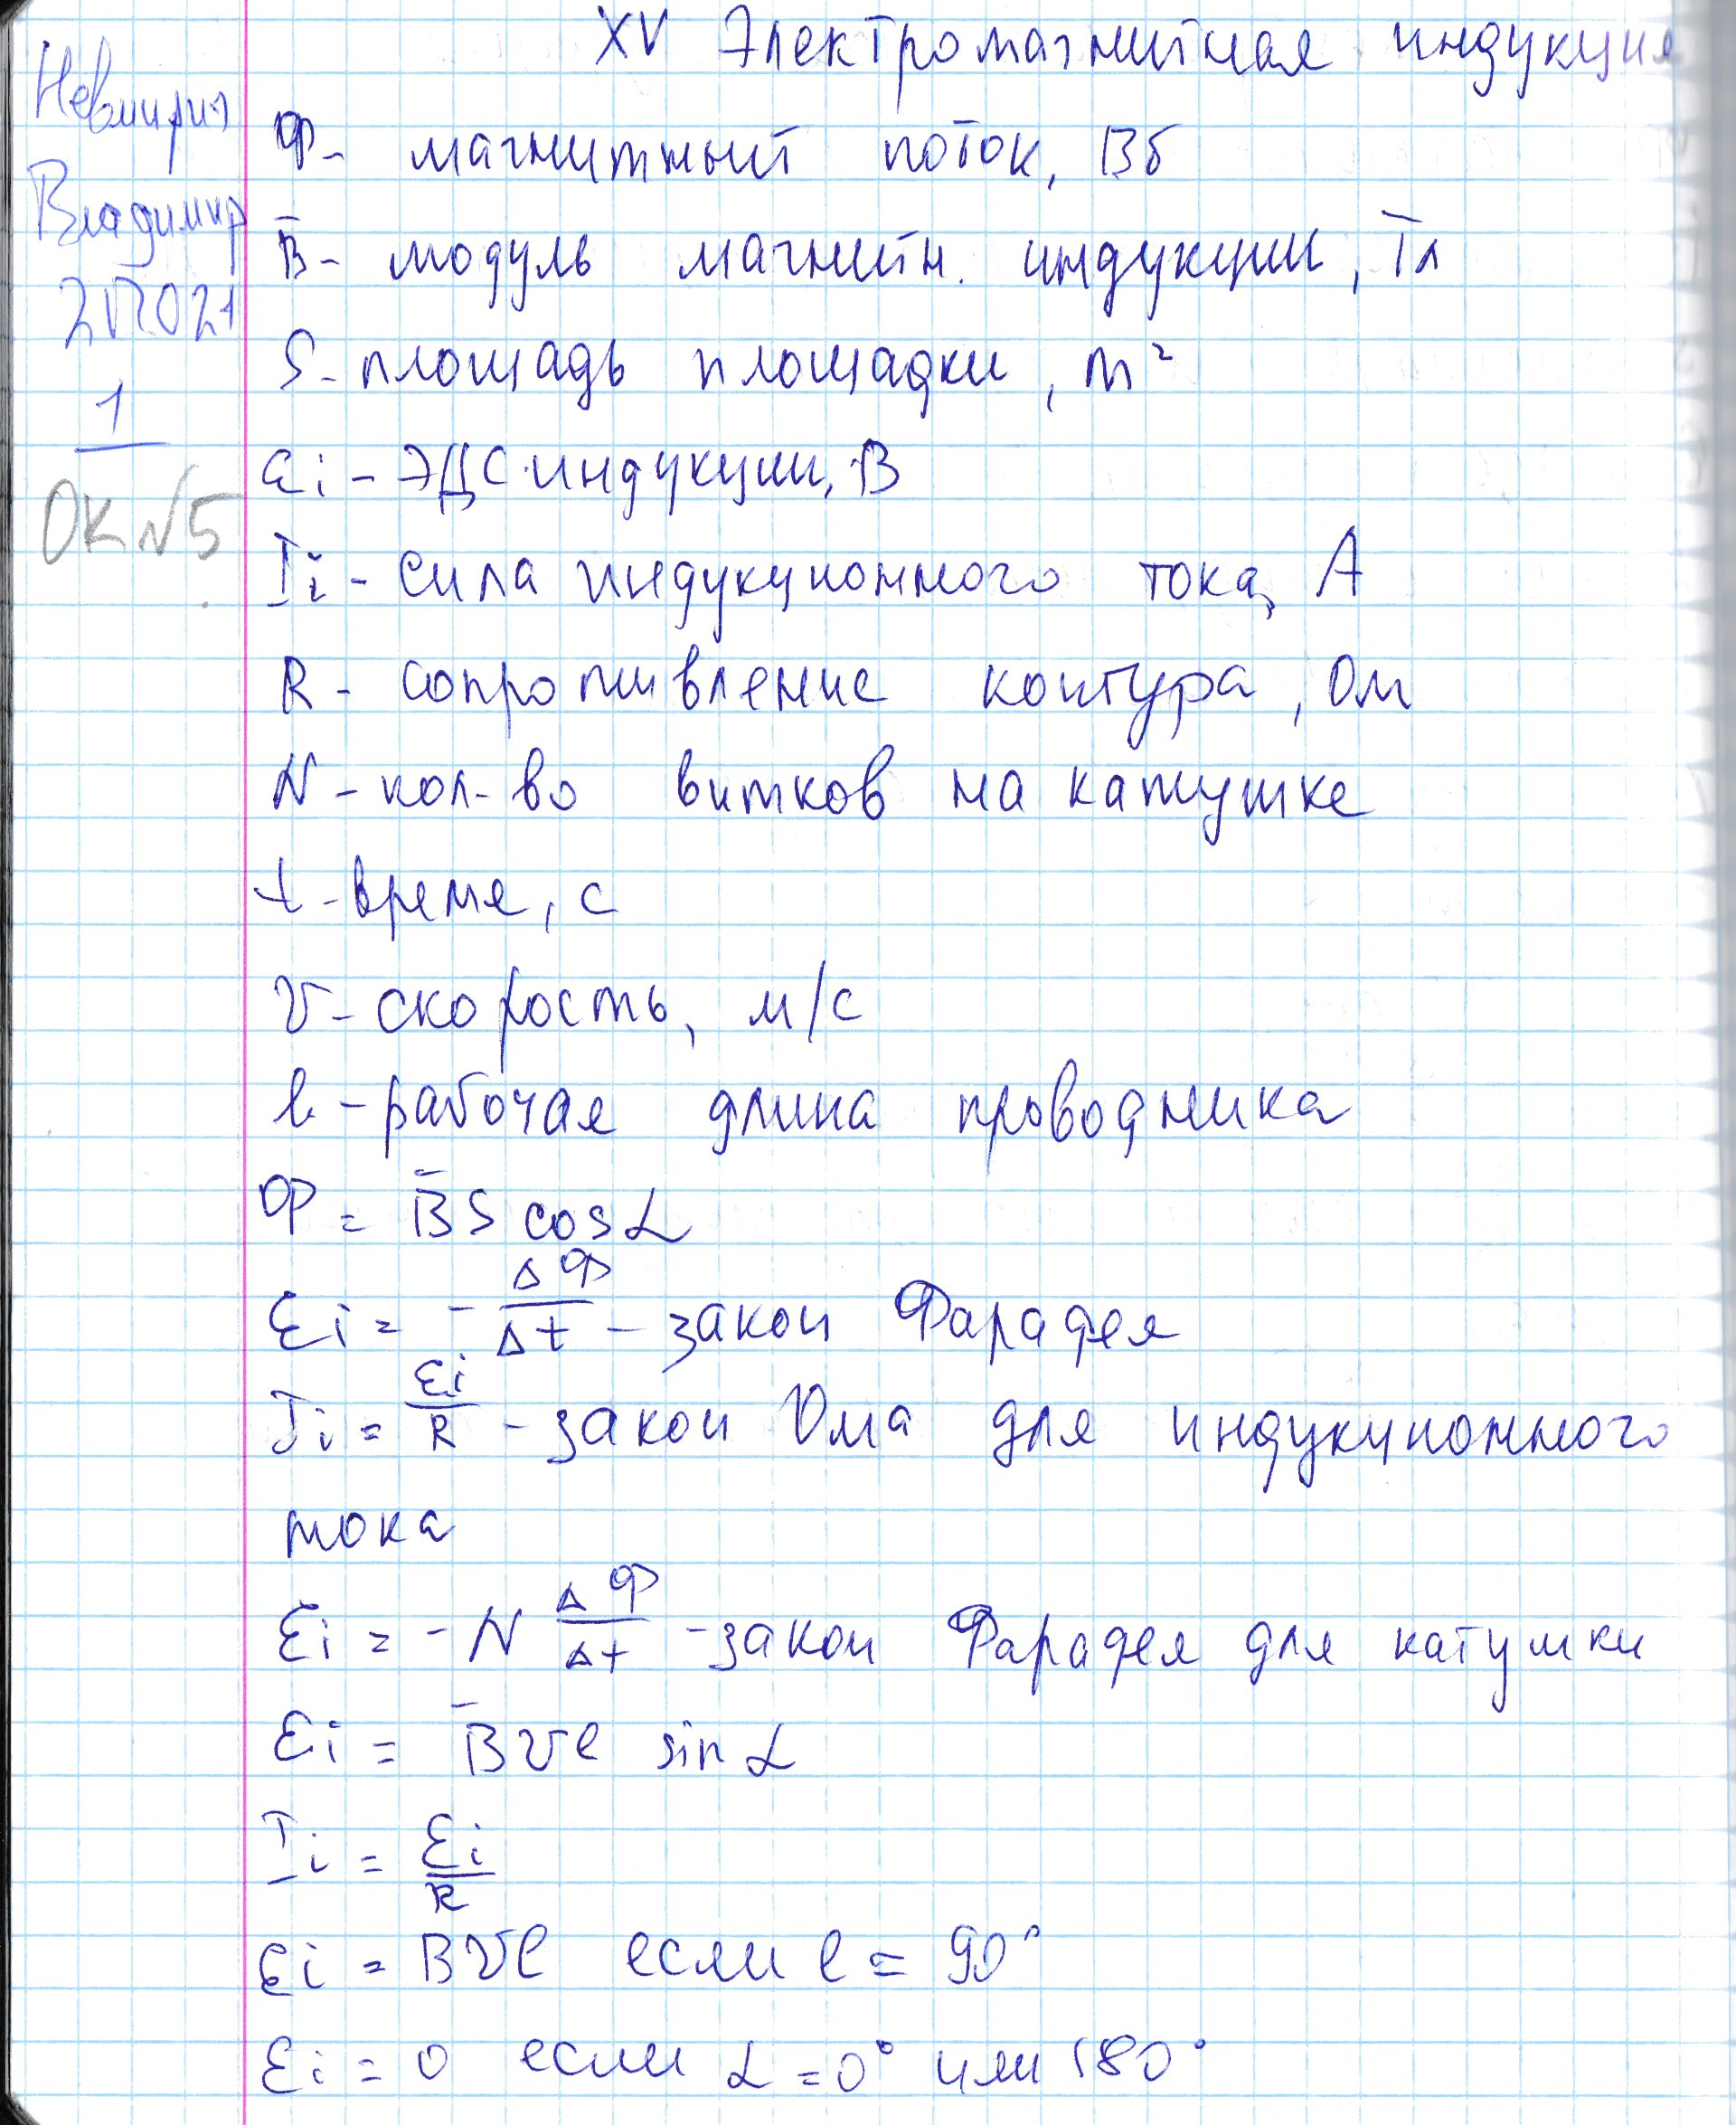 XV Электромагнитная индукция
Владимир
1
ОК №5
Ф - магнитный поток, Вб
B̄ - модуль магнитн. индукции, Тл
S - площадь площадки, m²
Ɛi - ЭДС индукции, В
Ii - сила индукционного тока, А
R - сопротивление контура, Ом
N - кол-во витков на катушке
t - время, с
v - скорость, м/с
l - рабочая длина проводника
Ф = B̄S cos α
Ɛi = - ΔФ/Δt - закон Фарадея
Ii = Ɛi/R - закон Ома для индукционного
тока
Ɛi = -N ΔФ/Δt - закон Фарадея для катушки
Ɛi = B̄vl sin α
Ii = Ɛi/R
Ɛi = Bvl если l = 90°
Ɛi = 0 если α = 0° или 180°